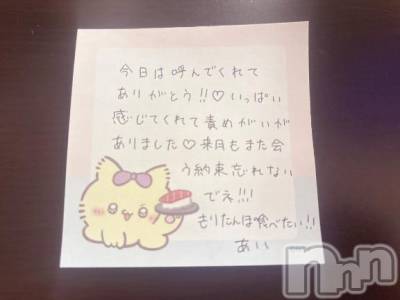 今日は呼んでくれて
ありがとう!!♡いっぱい
感じてくれて責めがいが
ありました♡来月もまた会
う約束忘れない
でネ!!!
もりたんほ食べたい!!
あい
nnn